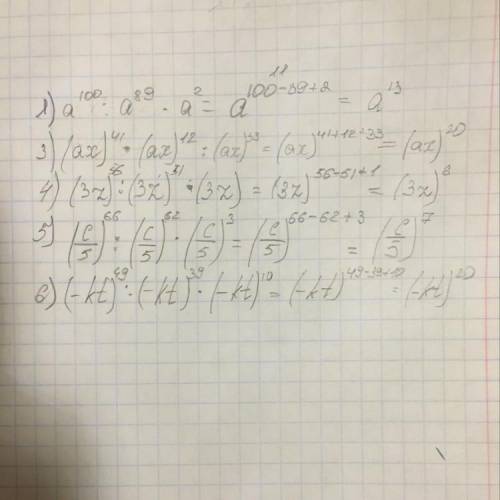 1) a^100 : a^89 · a^2 = a^(100-89+2) = a^13
3) (ax)^41 · (ax)^12 : (ax)^33 = (ax)^(41+12+33) = (ax)^20
4) (3z)^56 : (3z)^51 · (3z) = (3z)^(56-51+1) = (3z)^6
5) (c/5)^66 : (c/5)^62 · (c/5)^3 = (c/5)^(66-62+3) = (c/5)^7
6) (-kt)^49 : (-kt)^39 · (-kt)^10 = (-kt)^(49-39+10) = (-kt)^20